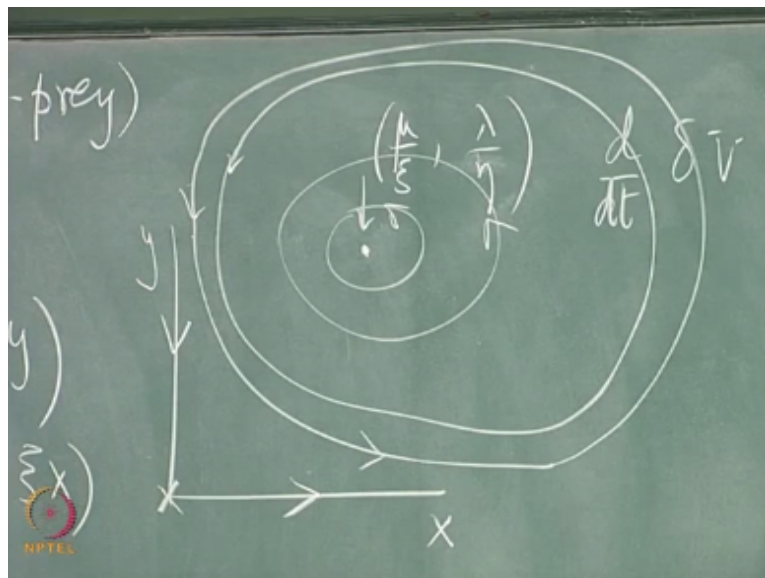 -prey)
(μ/ξ, λ/η)
d/dt δV
y
y)
ξx)
x
NPTEL